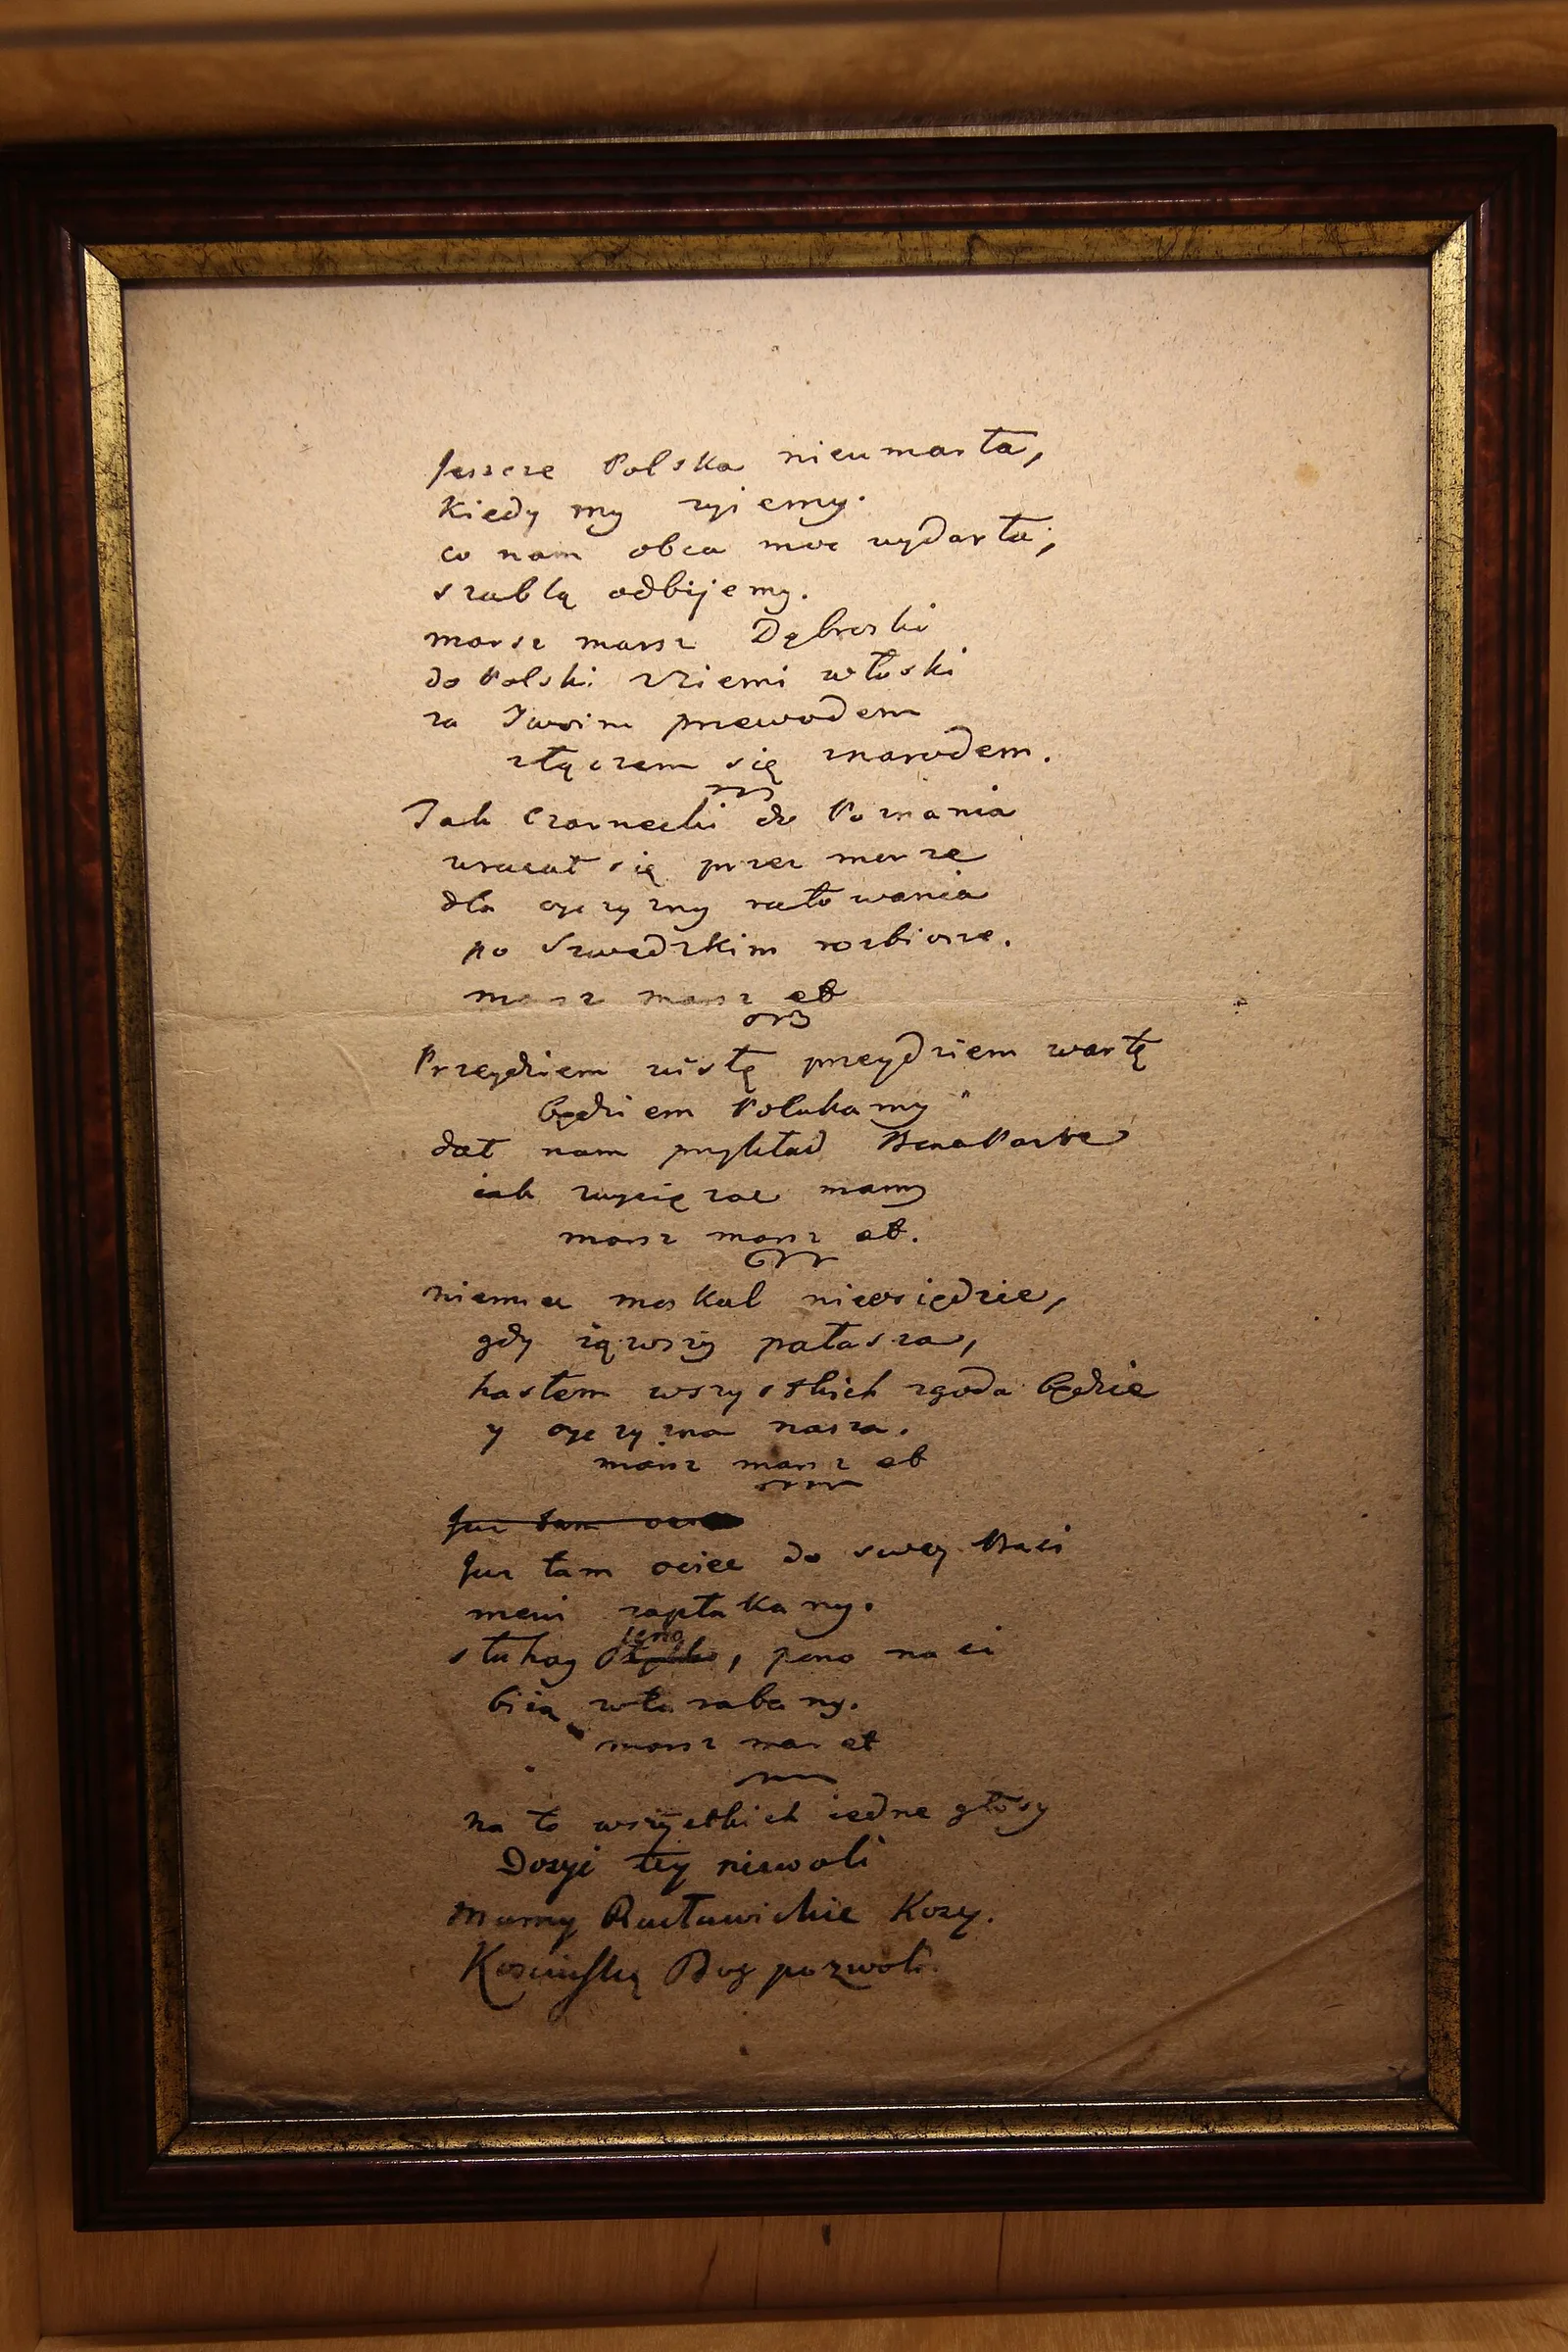 Jeszcze Polska nieumarła,
kiedy my żyiemy.
co nam obca moc wydarła,
szablą odbijemy.
marsz marsz Dąbroski
do Polski zziemi włoski
za Twoim przewodem
złączem się znarodem.
Jak Czarnecki do Poznania
wracał się przez morze
dla oyczyzny ratowania
po Szwedzkim rozbiorze.
marsz marsz et
Przeydziem wisłę przeydziem wartę
będziem Polakamy
dał nam przykład BonaParte
iak zwyciężać mamy
marsz marsz et.
niemiec moskal nieosiędzie,
gdy iąwszy pałasza,
hasłem wszystkich zgoda będzie
y oyczyzna nasza.
marsz marsz et
Już tam
Już tam ociec do swey Basi
mewi zapłakany.
słuhay ieno, pono nasi
biią wta rabany.
marsz mar et
na to wszystkich iedne głosy
Dosyć tey niewoli
mamy Racławickie Kosy.
Kosciuszkę Bog pozwoli.